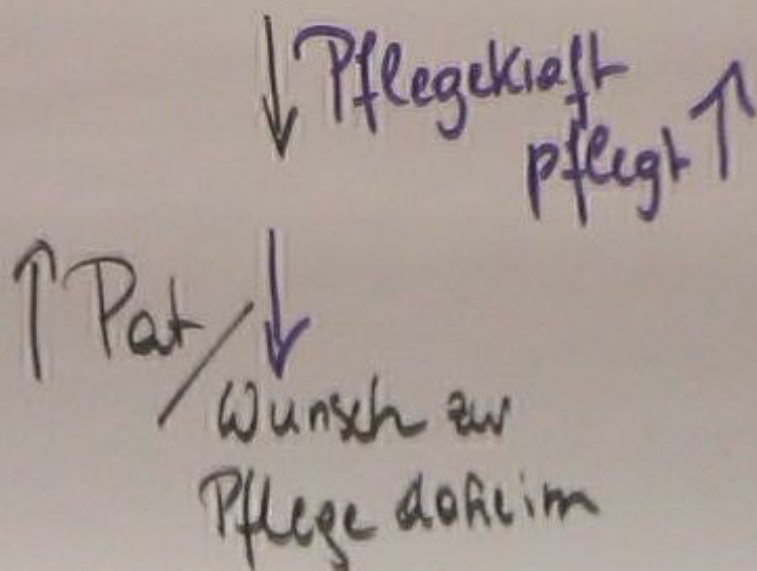 ↓ Pflegekraft
pflegt ↑
↑ Pat / ↓
Wunsch zur
Pflege daheim